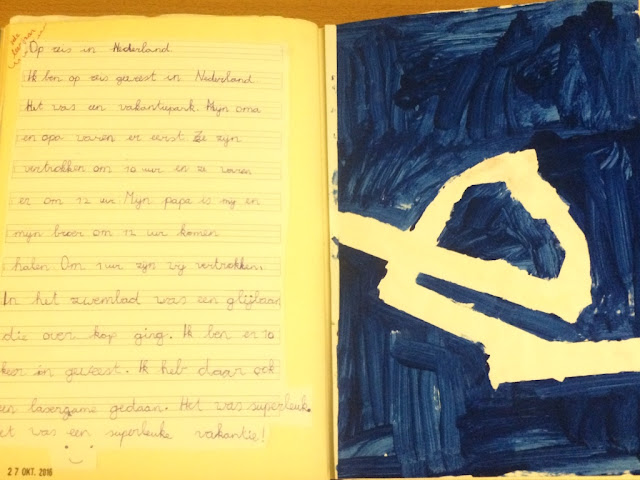 Op reis in Nederland
Ik ben op reis geweest in Nederland
Het was een vakantiepark. Mijn oma
en opa waren er eerst Ze zijn
vertrokken om 10 uur en ze waren
er om 12 uur. My papa is mij en
mijn broer om 12 uur komen
halen Om 1 uur zijn wij vertrokken.
In het zwembad was een glijbaan
die over kop ging. Ik ben er 10
keer in geweest. Ik heb daar ook
een lasergame gedaan. Het was superleuk.
et was een superleuke vakantie!
27 OKT. 2016